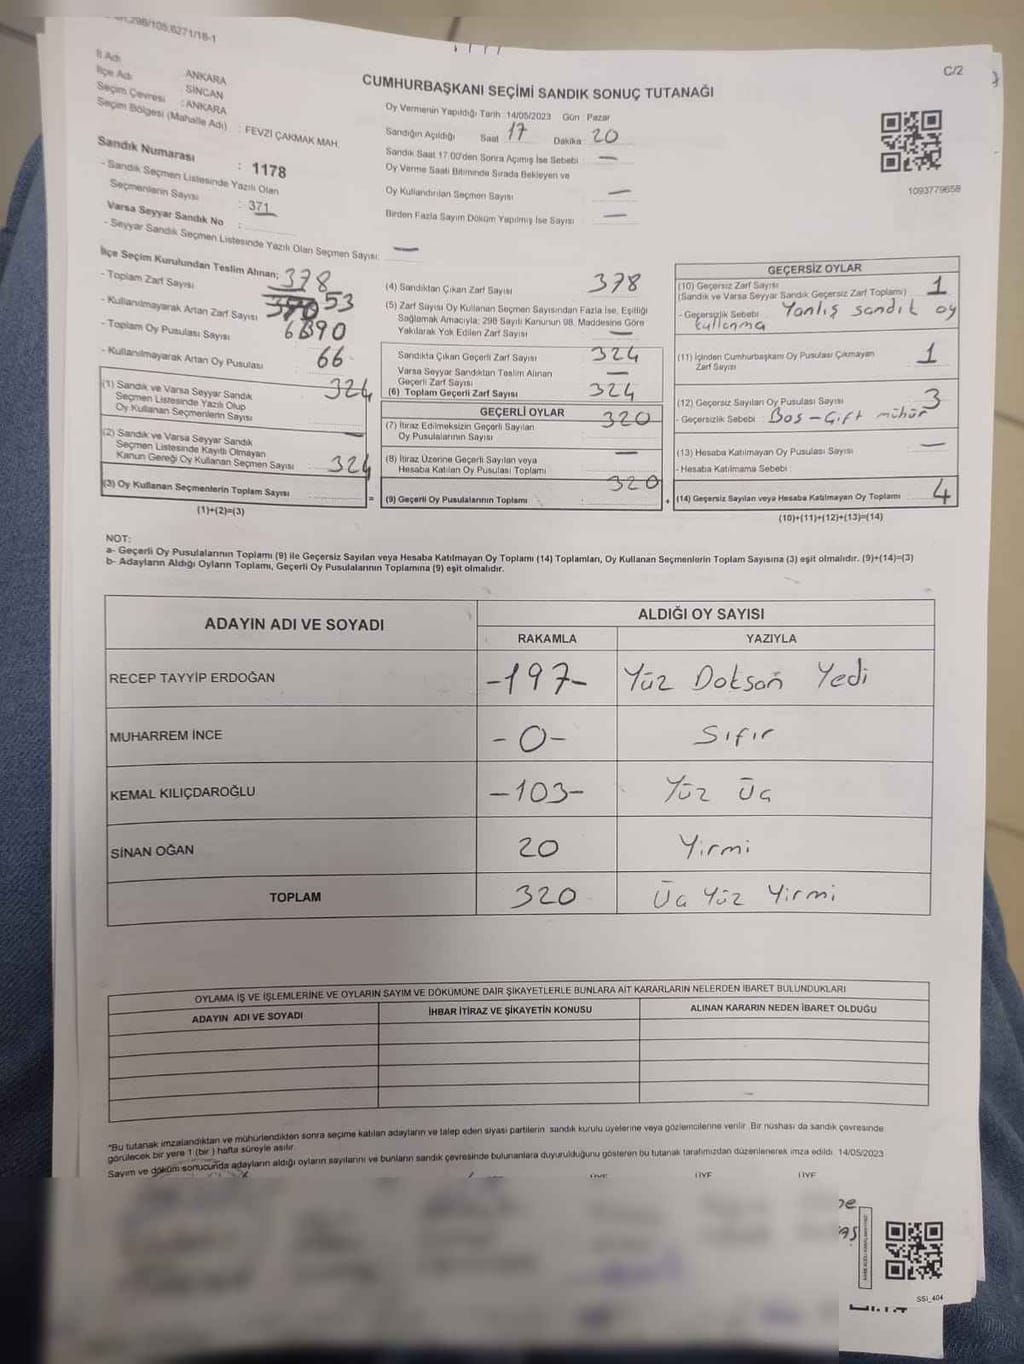 298/105,6271/18-1
C/2
İl Adı : ANKARA
İlçe Adı : SİNCAN
Seçim Çevresi : ANKARA
Seçim Bölgesi (Mahalle Adı) : FEVZİ ÇAKMAK MAH.
CUMHURBAŞKANI SEÇİMİ SANDIK SONUÇ TUTANAĞI
Oy Vermenin Yapıldığı Tarih :14/05/2023 Gün : Pazar
Sandığın Açıldığı Saat 17 Dakika : 20
Sandık Saat 17.00'den Sonra Açılmış İse Sebebi : —
Oy Verme Saati Bitiminde Sırada Bekleyen ve
Oy Kullandırılan Seçmen Sayısı —
Birden Fazla Sayım Döküm Yapılmış İse Sayısı —
1093779658
Sandık Numarası : 1178
- Sandık Seçmen Listesinde Yazılı Olan
Seçmenlerin Sayısı : 371
Varsa Seyyar Sandık No :
- Seyyar Sandık Seçmen Listesinde Yazılı Olan Seçmen Sayısı: —
İlçe Seçim Kurulundan Teslim Alınan;
- Toplam Zarf Sayısı 378
- Kullanılmayarak Artan Zarf Sayısı 53
- Toplam Oy Pusulası Sayısı
- Kullanılmayarak Artan Oy Pusulası 66
(1) Sandık ve Varsa Seyyar Sandık
Seçmen Listesinde Yazılı Olup
Oy Kullanan Seçmenlerin Sayısı 324
(2) Sandık ve Varsa Seyyar Sandık
Seçmen Listesinde Kayıtlı Olmayan
Kanun Gereği Oy Kullanan Seçmen Sayısı —
(3) Oy Kullanan Seçmenlerin Toplam Sayısı 324
(1)+(2)=(3)
(4) Sandıktan Çıkan Zarf Sayısı 378
(5) Zarf Sayısı Oy Kullanan Seçmen Sayısından Fazla İse, Eşitliği
Sağlamak Amacıyla; 298 Sayılı Kanunun 98. Maddesine Göre
Yakılarak Yok Edilen Zarf Sayısı —
Sandıkta Çıkan Geçerli Zarf Sayısı 324
Varsa Seyyar Sandıktan Teslim Alınan
Geçerli Zarf Sayısı —
(6) Toplam Geçerli Zarf Sayısı 324
GEÇERLİ OYLAR
(7) İtiraz Edilmeksizin Geçerli Sayılan
Oy Pusulalarının Sayısı 320
(8) İtiraz Üzerine Geçerli Sayılan veya
Hesaba Katılan Oy Pusulası Toplamı —
= (9) Geçerli Oy Pusulalarının Toplamı 320
GEÇERSİZ OYLAR
(10) Geçersiz Zarf Sayısı
(Sandık ve Varsa Seyyar Sandık Geçersiz Zarf Toplamı) 1
- Geçersizlik Sebebi : Yanlış sandık oy
kullanma
(11) İçinden Cumhurbaşkanı Oy Pusulası Çıkmayan
Zarf Sayısı 1
(12) Geçersiz Sayılan Oy Pusulası Sayısı 3
- Geçersizlik Sebebi : Boş - Çift mühür
(13) Hesaba Katılmayan Oy Pusulası Sayısı —
- Hesaba Katılmama Sebebi :
+ (14) Geçersiz Sayılan veya Hesaba Katılmayan Oy Toplamı 4
(10)+(11)+(12)+(13)=(14)
NOT:
a- Geçerli Oy Pusulalarının Toplamı (9) ile Geçersiz Sayılan veya Hesaba Katılmayan Oy Toplamı (14) Toplamları, Oy Kullanan Seçmenlerin Toplam Sayısına (3) eşit olmalıdır. (9)+(14)=(3)
b- Adayların Aldığı Oyların Toplamı, Geçerli Oy Pusulalarının Toplamına (9) eşit olmalıdır.
ADAYIN ADI VE SOYADI
ALDIĞI OY SAYISI
RAKAMLA YAZIYLA
RECEP TAYYİP ERDOĞAN -197- Yüz Doksan Yedi
MUHARREM İNCE -0- Sıfır
KEMAL KILIÇDAROĞLU -103- Yüz Üç
SİNAN OĞAN 20 Yirmi
TOPLAM 320 Üç Yüz Yirmi
OYLAMA İŞ VE İŞLEMLERİNE VE OYLARIN SAYIM VE DÖKÜMÜNE DAİR ŞİKAYETLERLE BUNLARA AİT KARARLARIN NELERDEN İBARET BULUNDUKLARI
ADAYIN ADI VE SOYADI İHBAR İTİRAZ VE ŞİKAYETİN KONUSU ALINAN KARARIN NEDEN İBARET OLDUĞU
*Bu tutanak imzalandıktan ve mühürlendikten sonra seçime katılan adayların ve talep eden siyasi partilerin sandık kurulu üyelerine veya gözlemcilerine verilir. Bir nüshası da sandık çevresinde
görülecek bir yere 1 (bir) hafta süreyle asılır.
Sayım ve döküm sonucunda adayların aldığı oyların sayılarını ve bunların sandık çevresinde bulunanlara duyurulduğunu gösteren bu tutanak tarafımızdan düzenlenerek imza edildi. 14/05/2023
SSİ_404